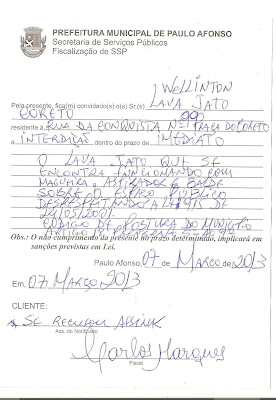 PREFEITURA MUNICIPAL DE PAULO AFONSO
Secretaria de Serviços Públicos
Fiscalização de SSP
WELLINTON
Pela presente, fica(m) convidado(s) o(s) Sr.(s) LAVA JATO
LORETO 990
residente à RUA DA CONQUISTA Nº PRAÇA DO LORETO
a INTERDIÇÃO dentro do prazo de IMEDIATO
O LAVA JATO QUE SE
ENCONTRA FUNCIONANDO COM
MAGUEIRA, ASPIRADOR E BALDE
SOBRE O PUBLICO
DESRESPEITANDO A DE
CODIGO DE POSTURA DO MUNICIPIO
Obs.: O não cumprimento da presente no prazo determinado, implicará em
sanções previstas em Lei.
Paulo Afonso, 07 de MARÇO de 2013
Em, 07. MARÇO 2013
CLIENTE:
SE RECUSOU ASSINAR
Ass. do Notificado
Carlos Marques
Fiscal